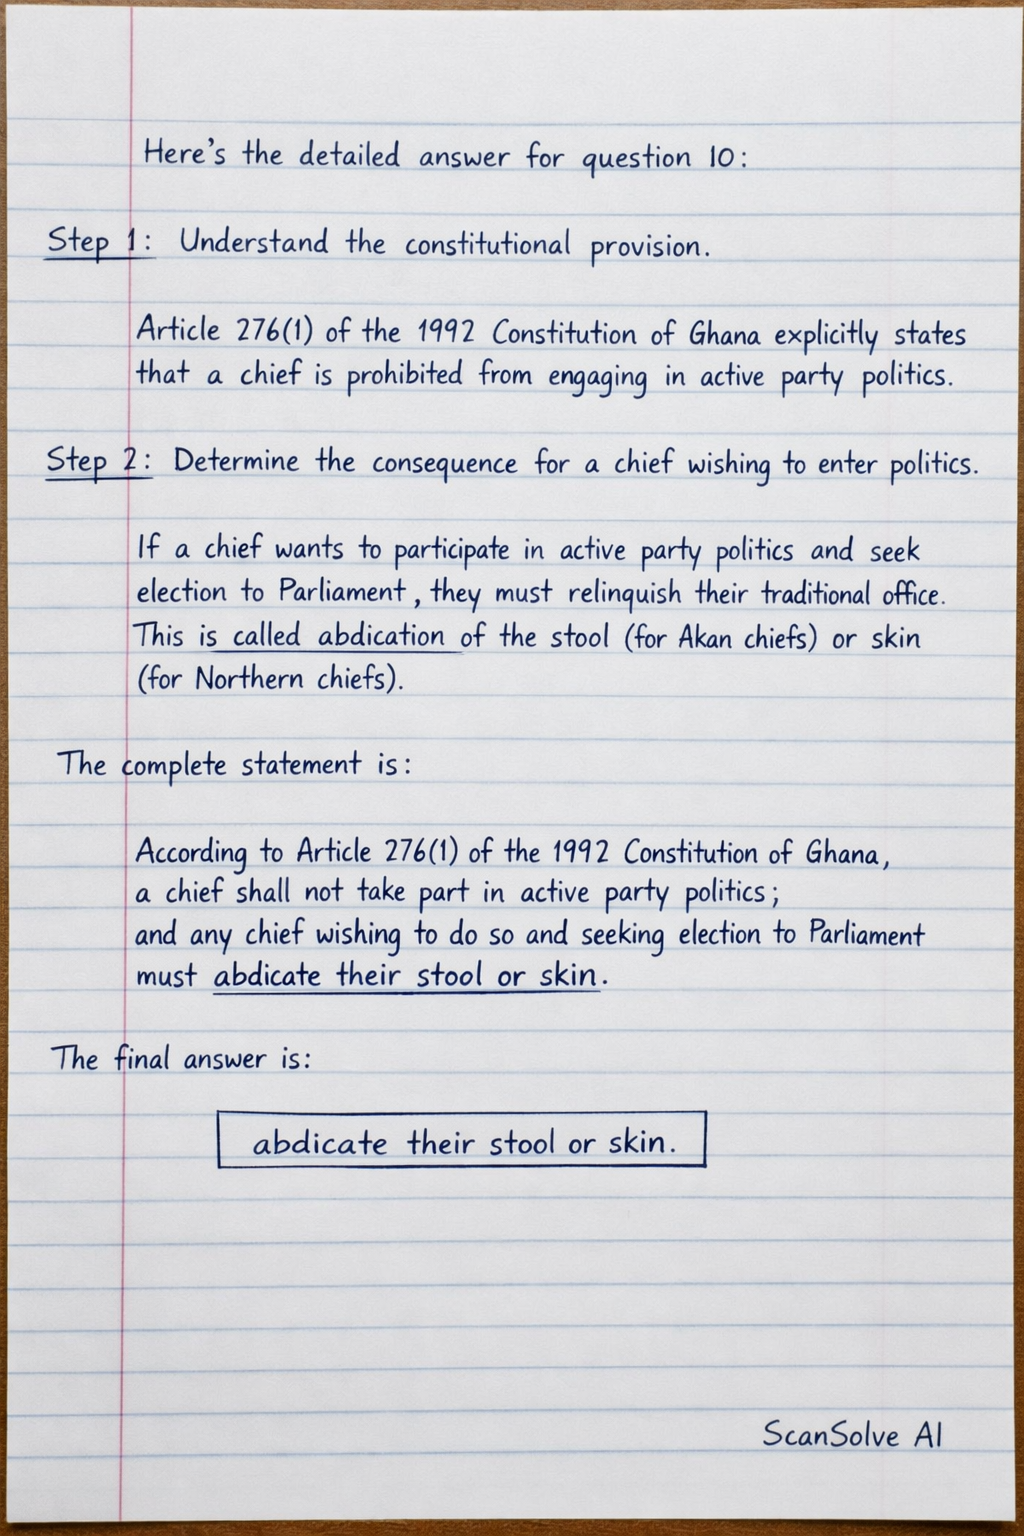 Here's the detailed answer for question 10:
Step 1: Understand the constitutional provision.
Article 276(1) of the 1992 Constitution of Ghana explicitly states
that a chief is prohibited from engaging in active party politics.
Step 2: Determine the consequence for a chief wishing to enter politics.
If a chief wants to participate in active party politics and seek
election to Parliament, they must relinquish their traditional office.
This is called abdication of the stool (for Akan chiefs) or skin
(for Northern chiefs).
The complete statement is:
According to Article 276(1) of the 1992 Constitution of Ghana,
a chief shall not take part in active party politics;
and any chief wishing to do so and seeking election to Parliament
must abdicate their stool or skin.
The final answer is:
abdicate their stool or skin.
ScanSolve AI